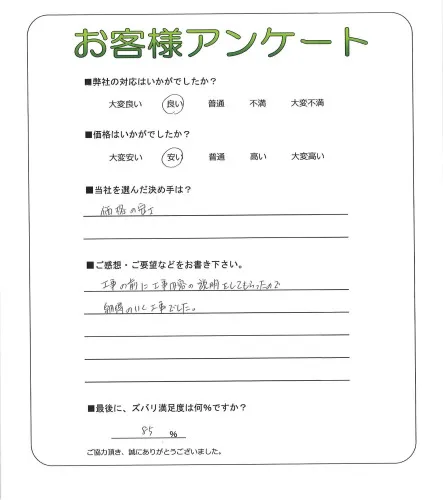 お客様アンケート
■弊社の対応はいかがでしたか?
大変良い 良い 普通 不満 大変不満
■価格はいかがでしたか?
大変安い 安い 普通 高い 大変高い
■当社を選んだ決め手は?
価格の安さ
■ご感想・ご要望などをお書き下さい。
工事の前に工事内容の説明をしてもらったので
納得のいく工事でした。
■最後に、ズバリ満足度は何%ですか?
85 %
ご協力頂き、誠にありがとうございました。